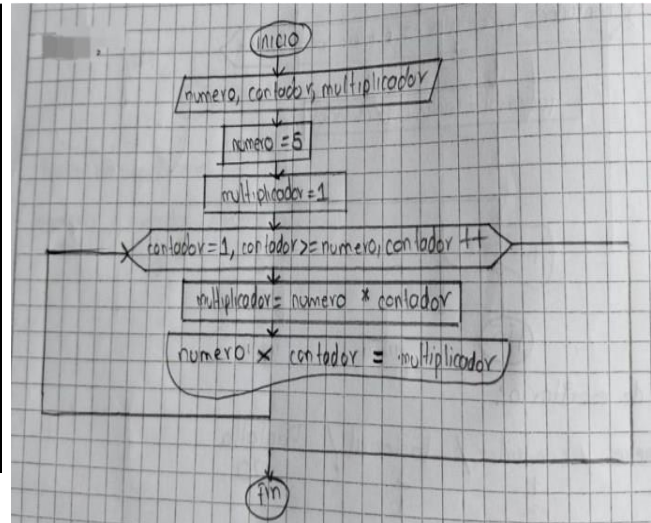 inicio
numero, contador, multiplicador
numero = 5
multiplicador = 1
contador = 1, contador >= numero, contador ++
multiplicador = numero * contador
numero x contador = multiplicador
fin